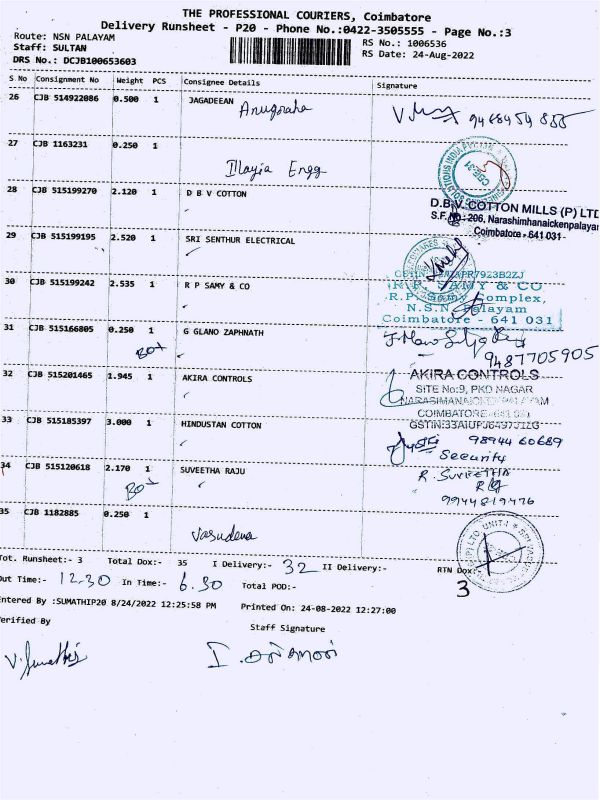 THE PROFESSIONAL COURIERS, Coimbatore
Delivery Runsheet - P20 - Phone No.:0422-3505555 - Page No.:3
Route: NSN PALAYAM
RS No.: 1006536
Staff: SULTAN
RS Date: 24-Aug-2022
DRS No.: DCJB100653603
S No Consignment No Weight PCS Consignee Details Signature
26 CJB 514922086 0.500 1 JAGADEEAN
Anugraha
27 CJB 1163231 0.250 1
Illayia Engg
28 CJB 515199270 2.120 1 D B V COTTON
D.B.V. COTTON MILLS (P) LTD
S.F. No.: 206, Narashimhanaickenpalayam
Coimbatore - 641 031
29 CJB 515199195 2.520 1 SRI SENTHUR ELECTRICAL
30 CJB 515199242 2.535 1 R P SAMY & CO
R.P. SAMY & CO
R.P. Samy Complex,
N.S.N. Palayam
Coimbatore - 641 031
31 CJB 515166805 0.250 1 G GLANO ZAPHNATH
Box
9487705905
32 CJB 515201465 1.945 1 AKIRA CONTROLS
AKIRA CONTROLS
SITE No:9, PKD NAGAR
NARASIMANAICKENPALAYAM
COIMBATORE-641 031
33 CJB 515185397 3.000 1 HINDUSTAN COTTON
98944 60689
Security
34 CJB 515120618 2.170 1 SUVEETHA RAJU
Box
R. SUVEETHA
9944819476
35 CJB 1182885 0.250 1
Vasudeva
Tot. Runsheet:- 3 Total Dox:- 35 I Delivery:- 32 II Delivery:- RTN Dox:- 3
Out Time:- 12.30 In Time:- 6.30 Total POD:-
Entered By :SUMATHIP20 8/24/2022 12:25:58 PM Printed On: 24-08-2022 12:27:00
Verified By Staff Signature
V. Sumathi